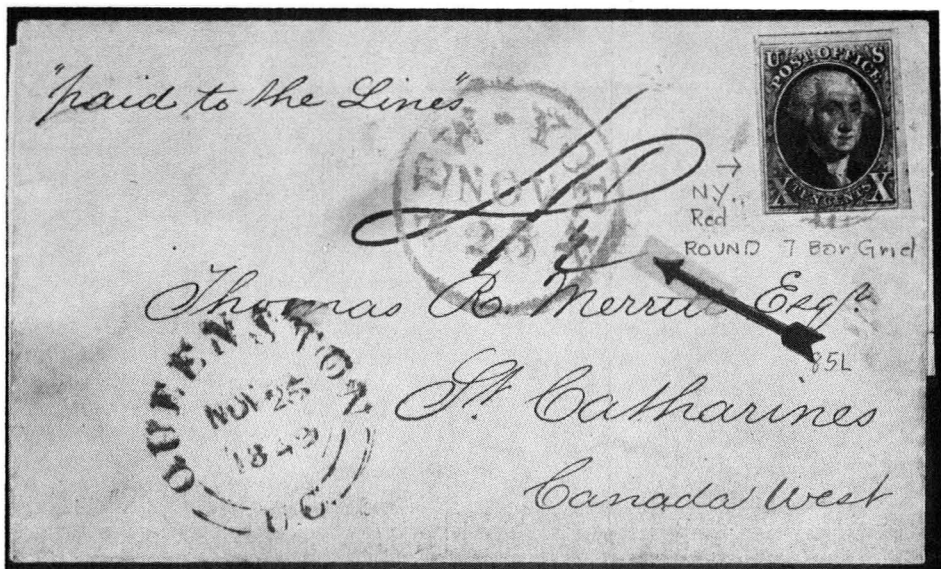 "paid to the Lines"
U S
POST OFFICE
X TEN CENTS X
NEW-YORK
NOV
N.Y.
Red
ROUND 7 Bar Grid
Thomas R. Merritt Esqr.
85L
QUEENSTON
NOV 25
1849
U.C.
St. Catharines
Canada West